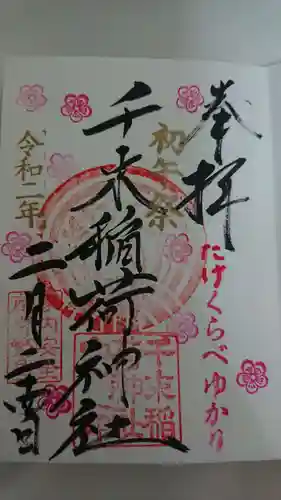 奉拝
たけくらべゆかり
初午祭
千束稲荷神社
令和二年
二月二十四日
家内安全
千束稲
荷神
社